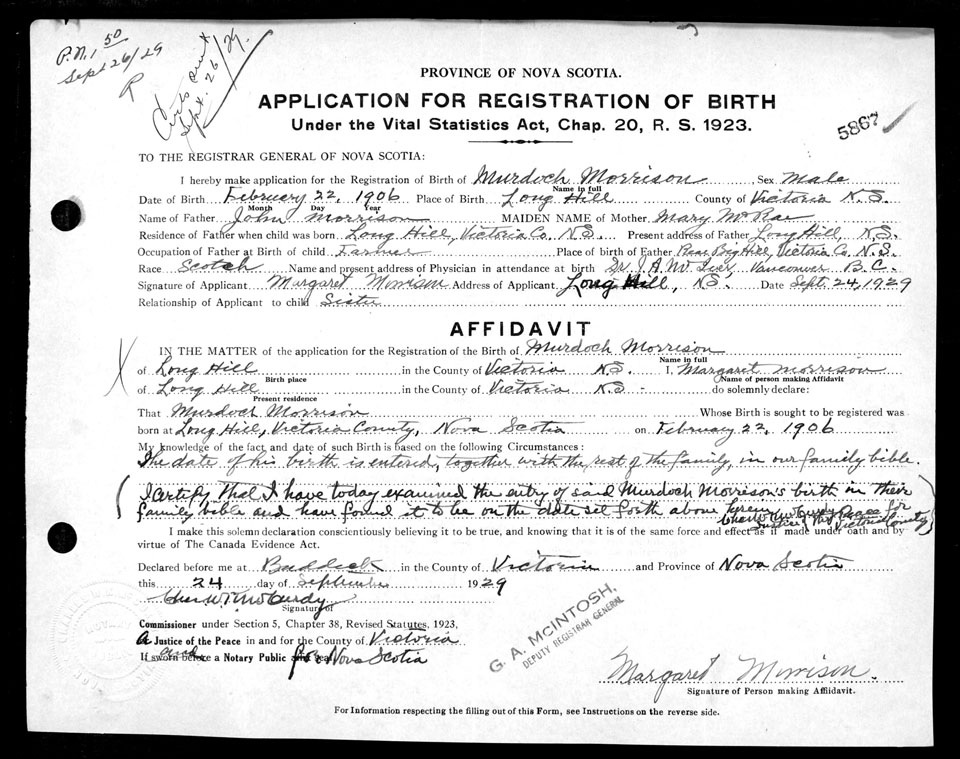 P.N. 1 50
Sept 26/29
R
Certs sent
Sept. 26/29.
PROVINCE OF NOVA SCOTIA.
APPLICATION FOR REGISTRATION OF BIRTH
Under the Vital Statistics Act, Chap. 20, R. S. 1923.
5867
TO THE REGISTRAR GENERAL OF NOVA SCOTIA:
I hereby make application for the Registration of Birth of Murdoch Morrison Sex Male
Name in full
Date of Birth February 22, 1906 Place of Birth Long Hill County of Victoria N.S.
Month Day Year
Name of Father John Morrison MAIDEN NAME of Mother Mary McRae
Residence of Father when child was born Long Hill, Victoria Co., N.S. Present address of Father Long Hill, N.S.
Occupation of Father at Birth of child Farmer Place of birth of Father Big Hill, Victoria Co. N.S.
Race Scotch Name and present address of Physician in attendance at birth Dr. J. A. McIver, Vancouver B.C.
Signature of Applicant Margaret Morrison Address of Applicant Long Hill, N.S. Date Sept. 24, 1929
Relationship of Applicant to child Sister
AFFIDAVIT
IN THE MATTER of the application for the Registration of the Birth of Murdoch Morrison
Name in full
of Long Hill in the County of Victoria N.S. I, Margaret Morrison
Birth place Name of person making Affidavit
of Long Hill in the County of Victoria N.S. do solemnly declare:
Present residence
That Murdoch Morrison Whose Birth is sought to be registered was
born at Long Hill, Victoria County, Nova Scotia on February 22, 1906
My knowledge of the fact and date of such Birth is based on the following Circumstances:
The date of his birth is entered, together with the rest of the family, in our family bible.
(I certify that I have today examined the entry of said Murdoch Morrison's birth in their
family bible and have found it to be on the date set forth above herein
Justice of the Peace for
Victoria County)
I make this solemn declaration conscientiously believing it to be true, and knowing that it is of the same force and effect as if made under oath and by
virtue of The Canada Evidence Act.
Declared before me at Baddeck in the County of Victoria and Province of Nova Scotia
this 24 day of September 1929
Chas W. K. McCurdy
Signature of
Commissioner under Section 5, Chapter 38, Revised Statutes, 1923,
A Justice of the Peace in and for the County of Victoria
If sworn before and a Notary Public for Nova Scotia
G. A. McINTOSH,
DEPUTY REGISTRAR GENERAL
Margaret Morrison.
Signature of Person making Affidavit.
For Information respecting the filling out of this Form, see Instructions on the reverse side.